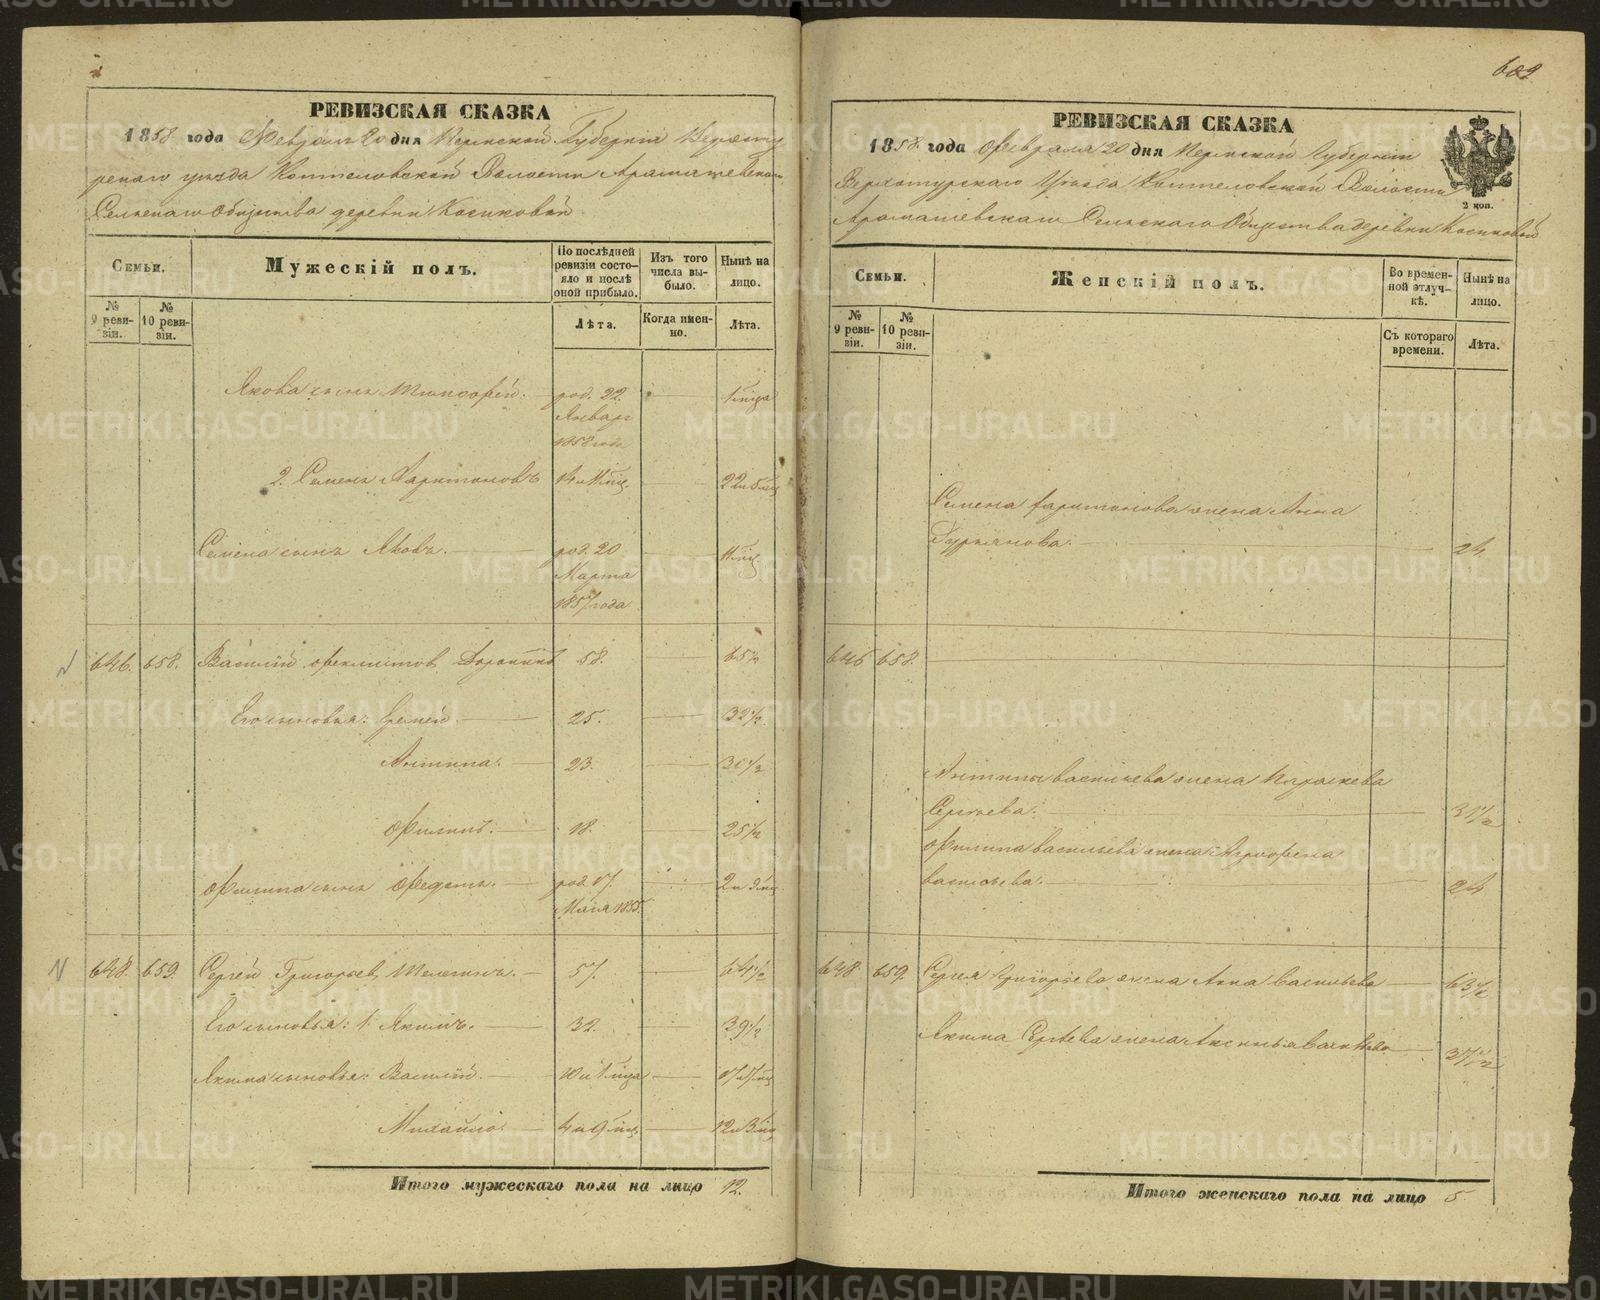 РЕВИЗСКАЯ СКАЗКА
1858 года Февраля 20 дня Пермской Губернии Верхоту
рскаго уезда Коптеловской Волости Арамашевскаго
Сельскаго Общества деревни Косиковой
Семьи.
Мужескій полъ.
По послѣдней ревизіи состояло и послѣ оной прибыло.
Изъ того числа выбыло.
Нынѣ на лицо.
№ 9 ревизіи.
№ 10 ревизіи.
Лѣта.
Когда именно.
Лѣта.
Якова сынъ Тимофей. род. 22 Января 1858 года
2. Семенъ Харитоновъ 14 и 11 мѣц. 22
Семена сынъ Яковъ. род. 20 Марта 1857 года 11 мѣц
646. 658. Василій Феклистов 58. 65½
Его сыновья: Еремей. 25. 32½
Антипа. 23. 30½
Филипъ. 18. 25½
Филипа сынъ Федотъ. род. 17. Мая 1855 2 и 9 мц.
648. 659. Сергей Григорьев, 57. 64½
Его сыновья: 1. Якимъ. 32. 39½
Якима сыновья: Василій.
Михайло 4 и 9 мц. 12 и 3 мц
Итого мужескаго пола на лицо 12.
689
РЕВИЗСКАЯ СКАЗКА
1858. года Февраля 20 дня Пермской Губернии
Верхотурскаго Уезда Коптеловской Волости
Арамашевскаго Сельскаго Общества деревни Косиковой
2 коп.
Семьи.
Женскій полъ.
Во временной отлучкѣ.
Нынѣ на лицо.
№ 9 ревизіи.
№ 10 ревизіи.
Съ котораго времени.
Лѣта.
Семена Харитонова жена Анна
Гурьянова. 24.
646 658.
Антипы Васильева жена Параскева
Сергеева. 31½
Филипа Васильева жена Агрофена
Васильева. 24
648 659. Сергея Григорьева жена Анна Васильева 63½
Якима Сергеева жена Аксинья 37½
Итого женскаго пола на лицо 5
METRIKI.GASO-URAL.RU